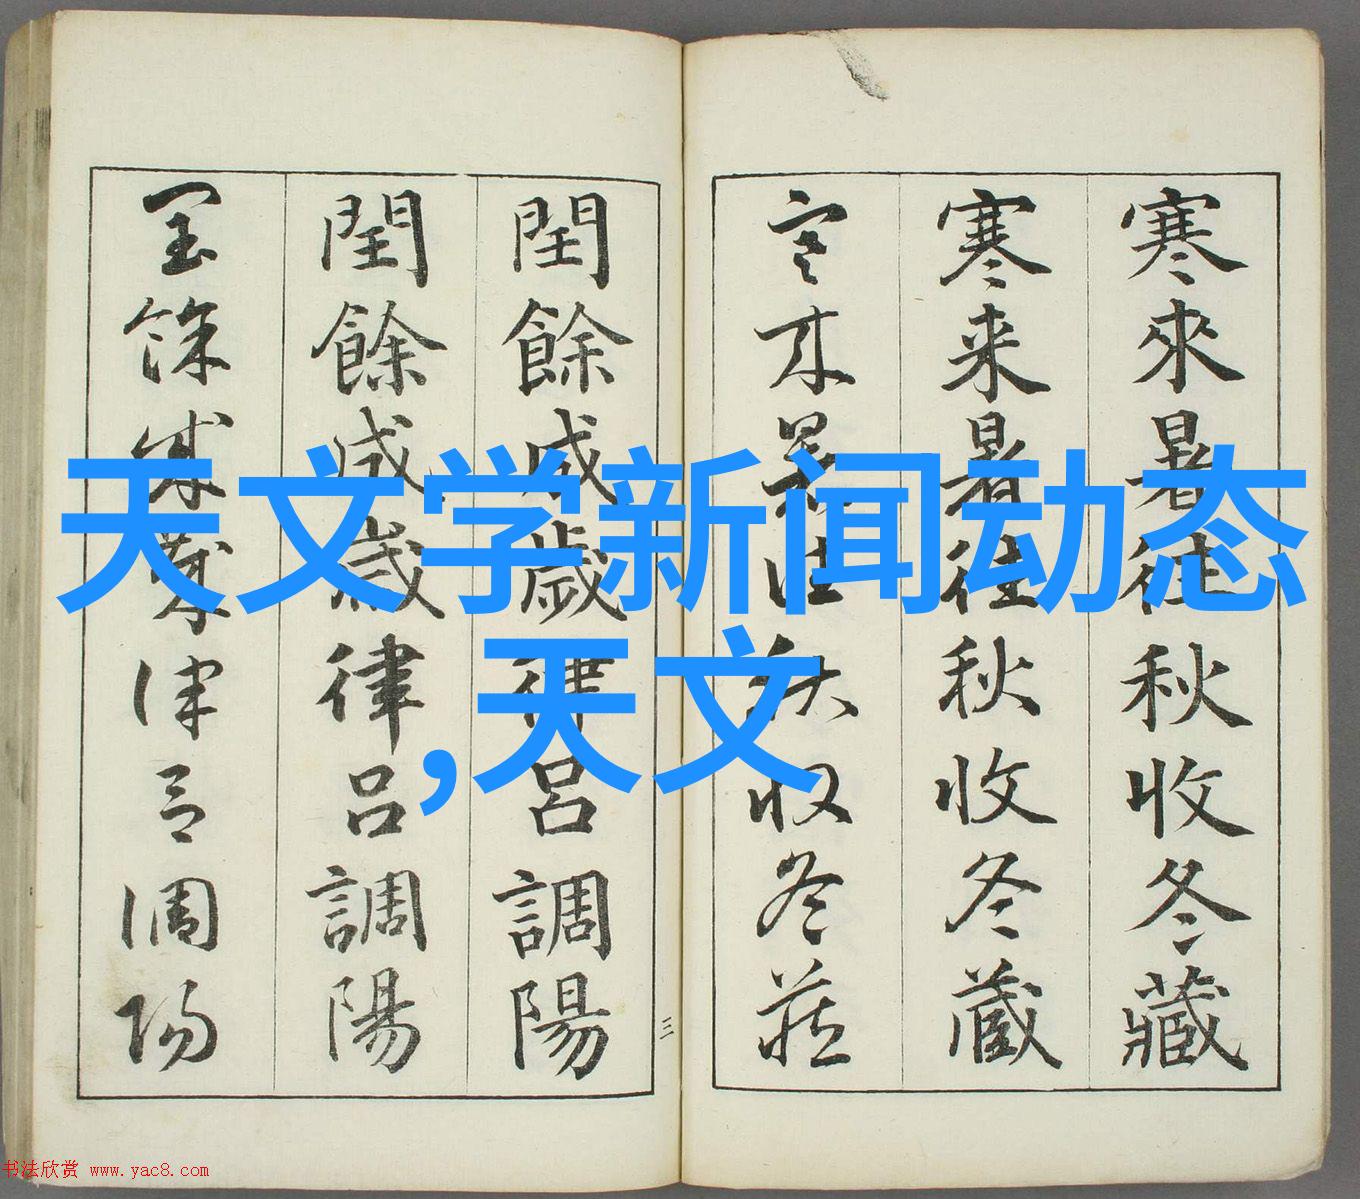 寒來暑往秋收冬藏
寒来暑往秋收冬蔵
寒来暑往秋收冬藏
閏餘成歲律呂調陽
閏餘成歲律呂調陽
閏餘成歲律呂調陽
三
天文学新闻动态
,天文
书法欣赏 www.yac8.com